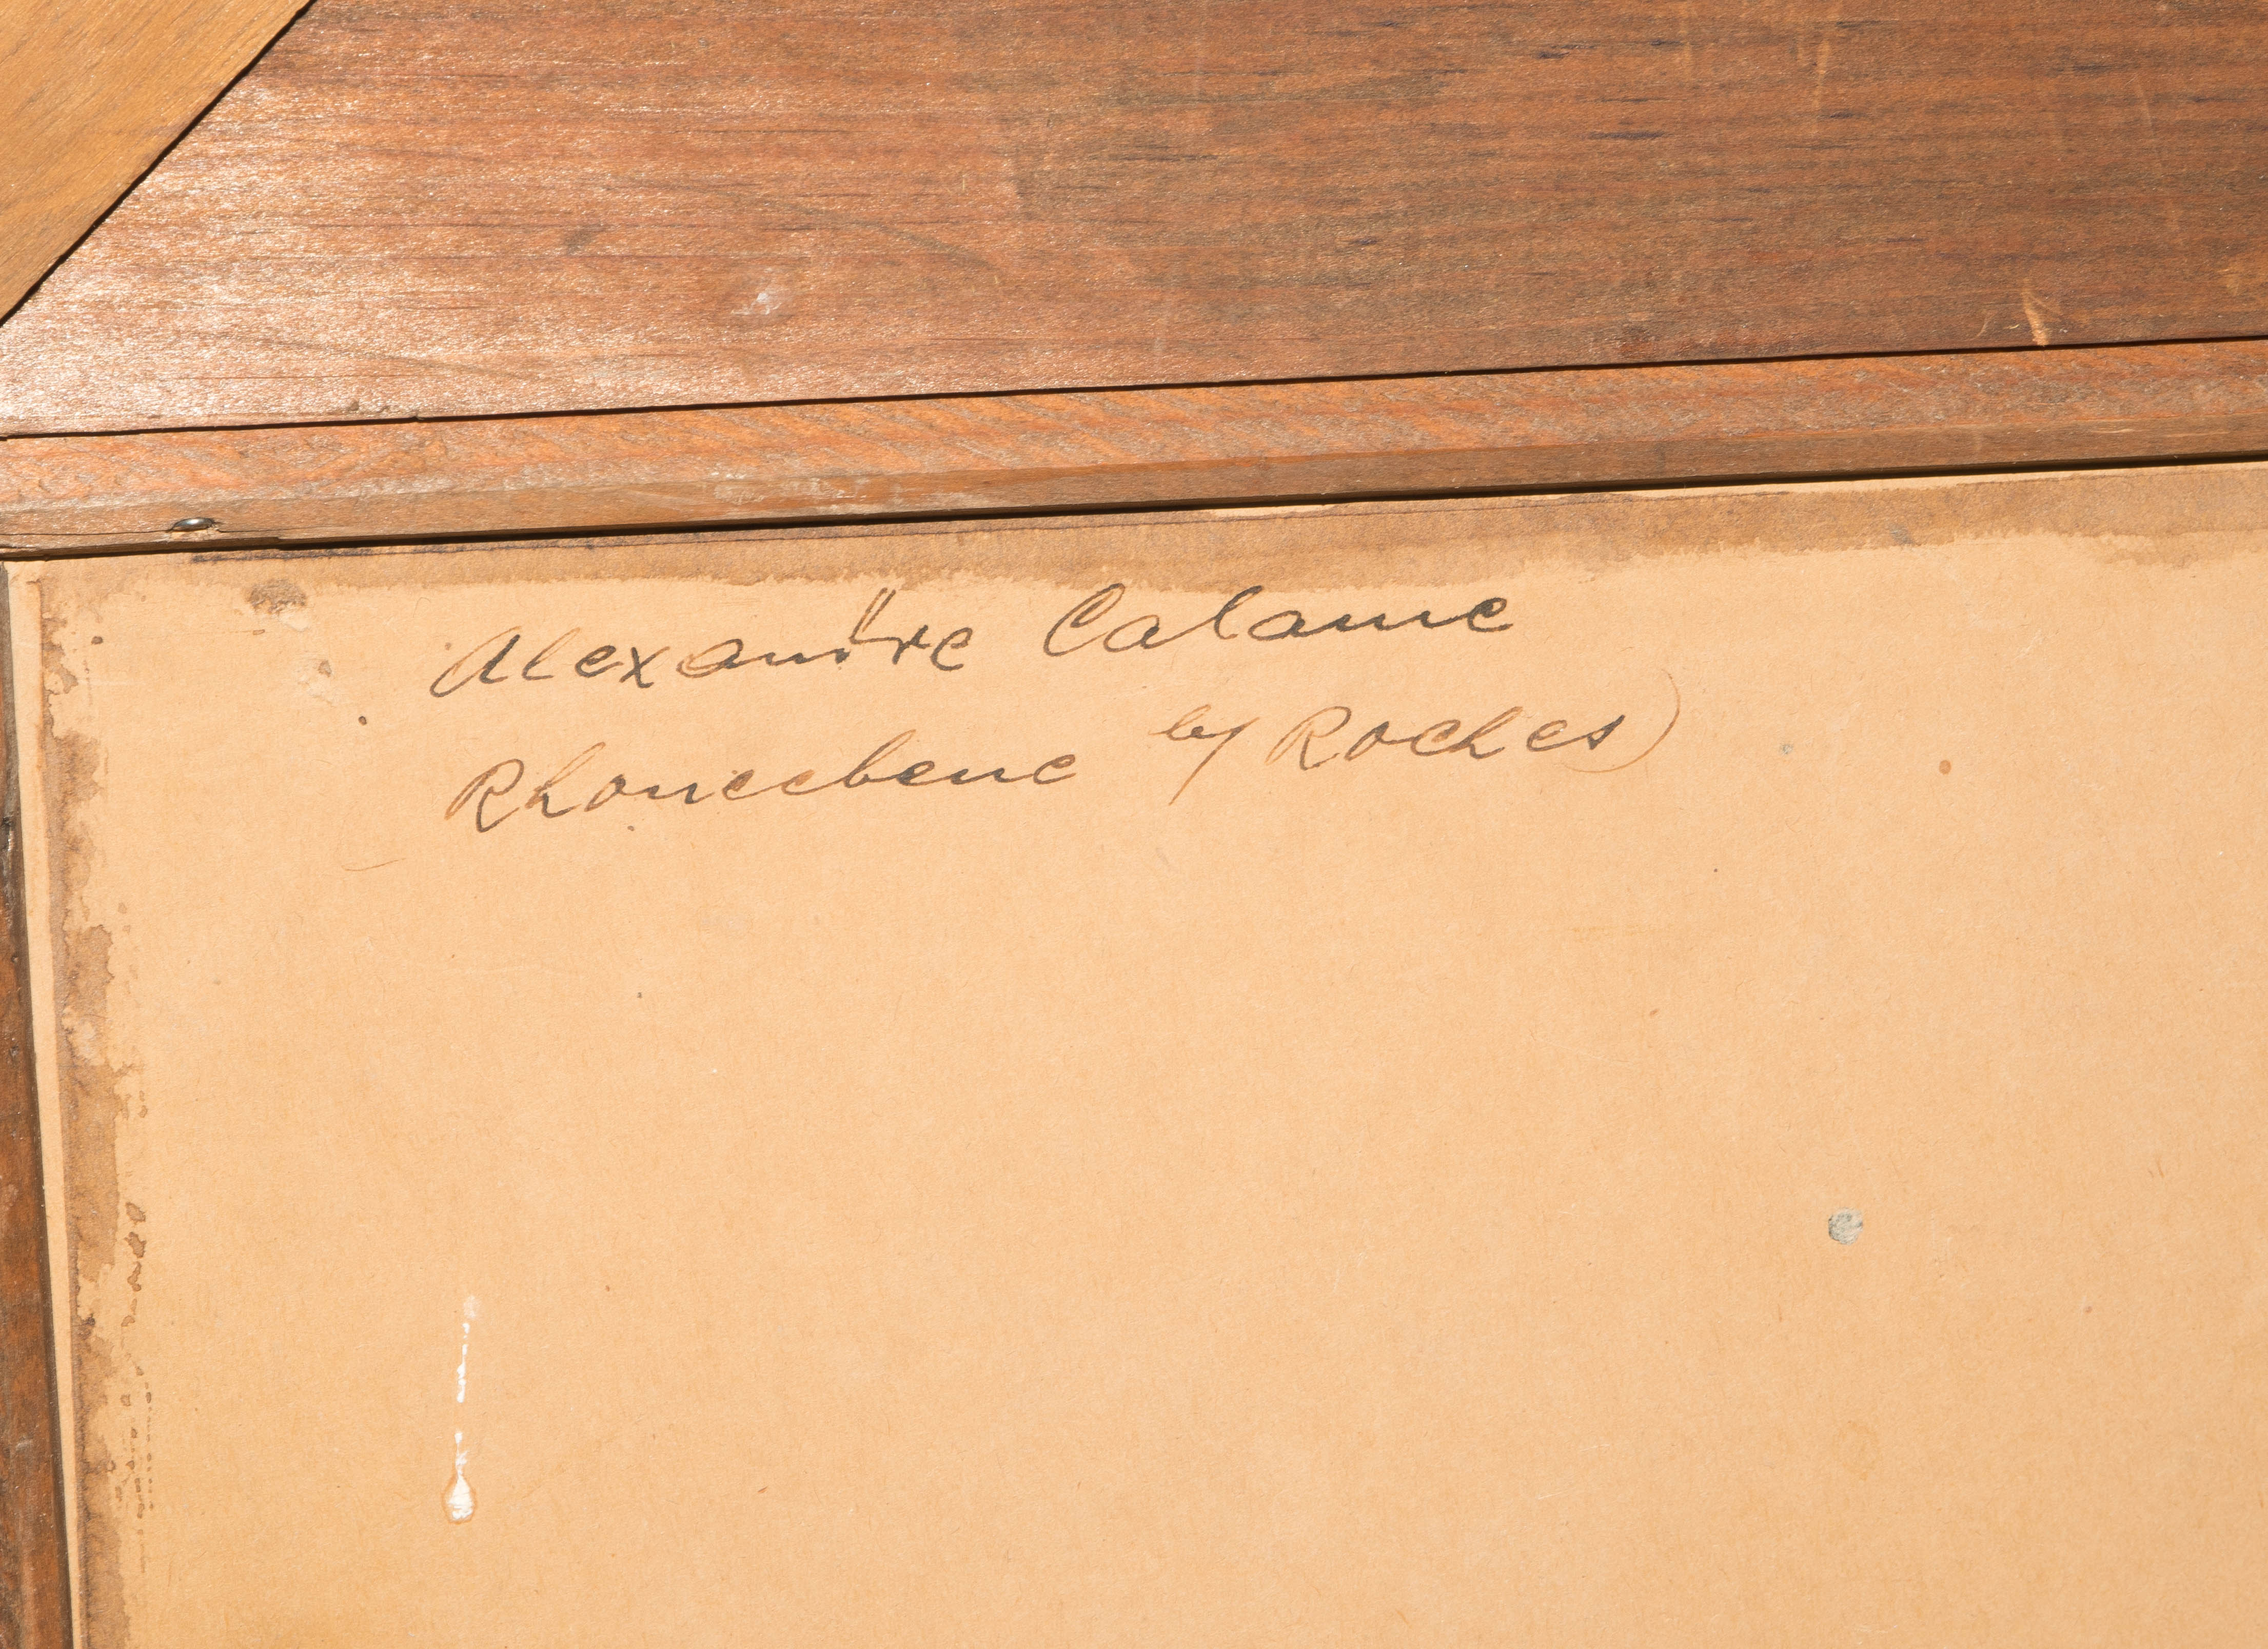 Alexandre Calame
Rhoneebene by Roches)